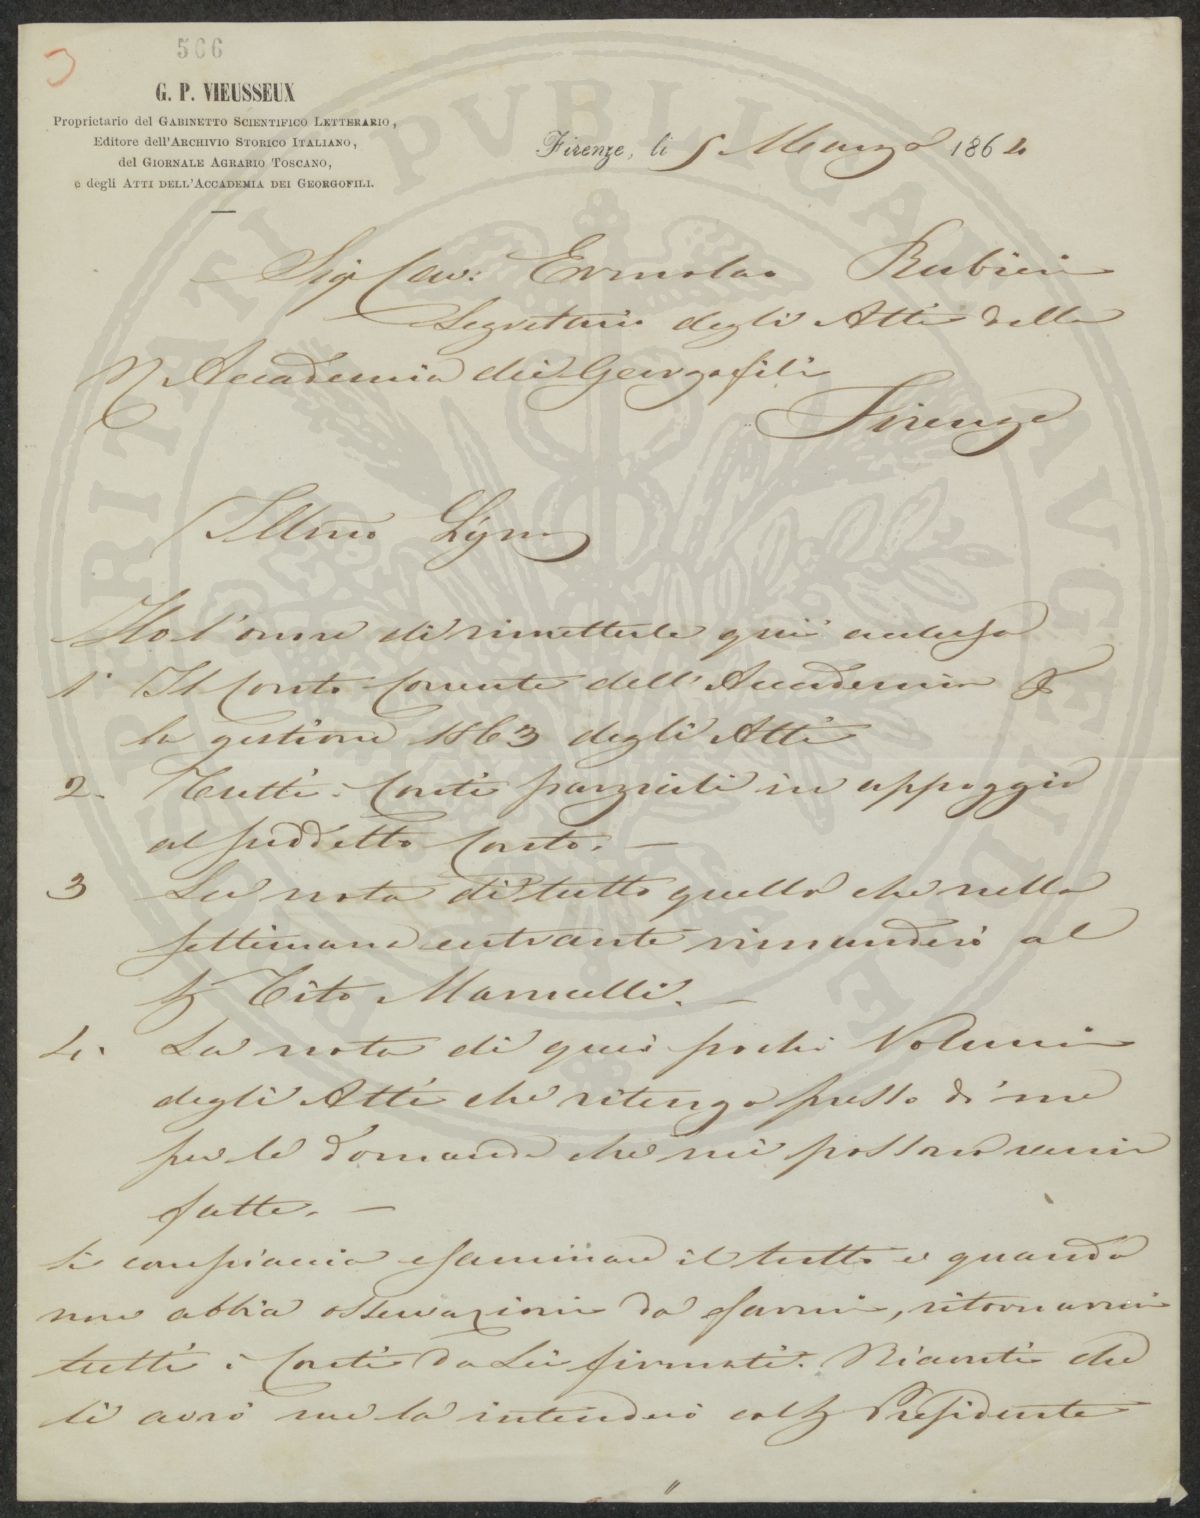 506
G. P. VIEUSSEUX
Proprietario del GABINETTO SCIENTIFICO LETTERARIO,
Editore dell'ARCHIVIO STORICO ITALIANO,
del GIORNALE AGRARIO TOSCANO,
e degli ATTI DELL'ACCADEMIA DEI GEORGOFILI.
Firenze, li 5 Marzo 1864
Sigr Cav: Ermolao Rubieri
Segretario degli Atti della
R Accademia dei Georgofili
Firenze
Illmo Signe
Ho l'onore di rimetterle qui accluso
1° Il Conto Corrente dell'Accademia
la gestione 1863 degli Atti
2. Tutti i Conti parziali in appoggio
al suddetto Conto. —
3 La nota di tutto quello che nella
settimana entrante rimanderò al
Sr Tito Mannelli. —
4. La nota di quei pochi Volumi
degli Atti che ritengo presso di me
per le domande che mi possono venir
fatte. —
Si compiaccia esaminare il tutto e quando
non abbia osservazioni da farmi, ritornarmi
tutti i Conti da Lei firmati. Riavuti che
li avrò me la intenderò col Sr Presidente
PROSPERITATI PVBLICAE AVGENDAE